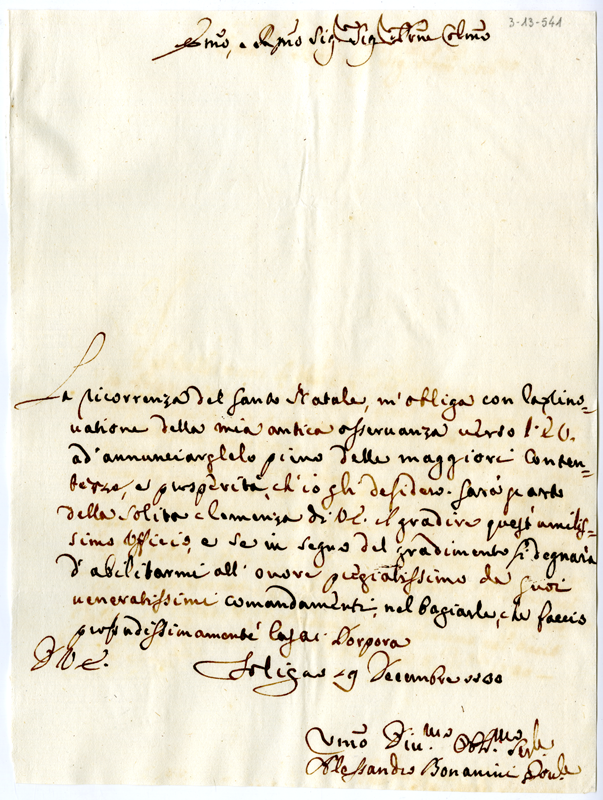 3-13-541
Emo, e Rmo Sig.r Sig.r Prne Colmo
La ricorrenza del Santo Natale, m'obliga con la rino-
uatione della mia antica osseruanza uerso l'E.V.
ad'annunciarglelo pieno delle maggiori Conten-
tezze, e prosperità, ch'io gli desidero. Sarà parto
della solita clemenza di V.E. il gradire quest'umilis-
simo Ufficio, e se in segno del gradimento si degnarà
d'abilitarmi all'onore pregiatissimo de suoi
ueneratissimi comandamenti, nel bagiarle, che faccio
profondissimamente la Sac. Porpora
D V.E.
19 Decembre
Vmo Diu.mo Obb.mo Ser.e
Alessandro Bonamini